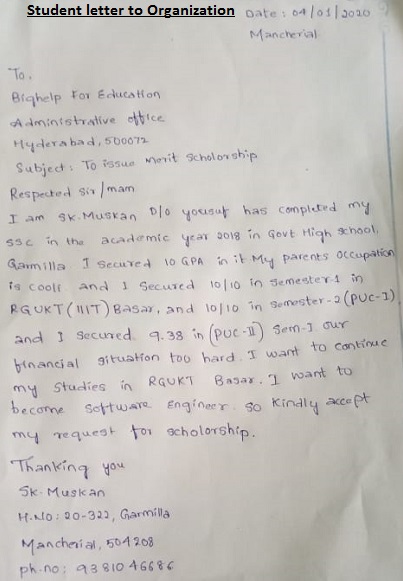 Student letter to Organization
Date : 04/01/2020
Mancherial
To,
Bighelp For Education
Administrative office
Hyderabad, 500072
Subject : To issue merit Scholorship
Respected Sir/mam
I am SK.Muskan D/o yousuf has completed my
SSC in the academic year 2018 in Govt High School,
Garmilla. I Secured 10 GPA in it My parents occupation
is coolf and I Secured 10/10 in Semester-1 in
RGUKT (IIIT) Basar, and 10/10 in Semester-2 (PUC-I)
and I Secured 9.38 in (PUC-II) Sem-I our
financial situation too hard. I want to continue
my Studies in RGUKT Basar. I want to
become Software Engineer. So Kindly accept
my request for scholorship.
Thanking you
SK.Muskan
H.No: 20-322, Garmilla
Mancherial, 504208
ph.no: 9381046686